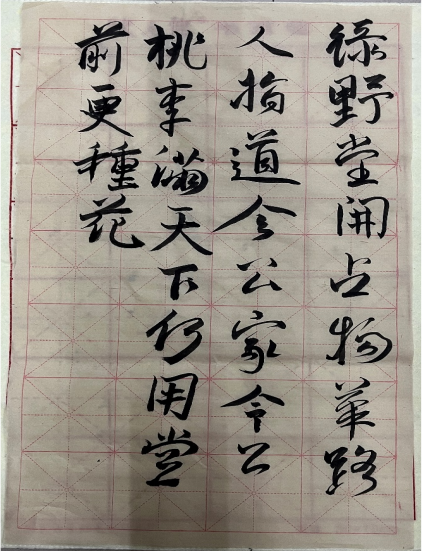 綠野堂開占物華路
人指道令公家令公
桃李滿天下何用堂
前更種花